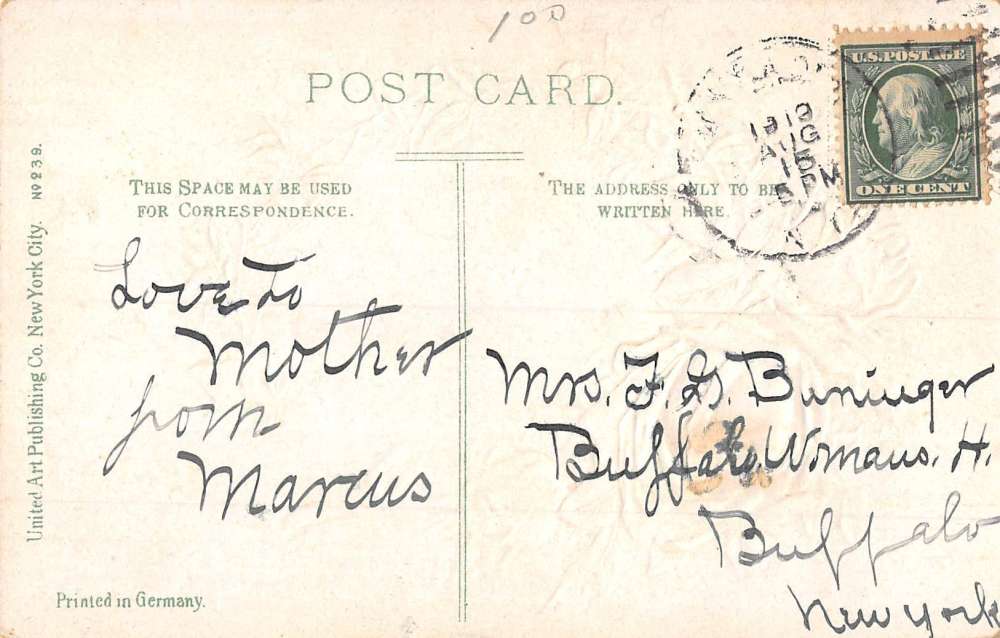 100
POST CARD.
U.S. POSTAGE
ONE CENT
1910
AUG
15
5 PM
THIS SPACE MAY BE USED
FOR CORRESPONDENCE.
THE ADDRESS ONLY TO BE
WRITTEN HERE.
Love to
Mother
from
Marcus
Mrs. F. G. Buninger
Buffalo Womans. H.
Buffalo
New York
United Art Publishing Co. New York City. No 239.
Printed in Germany.